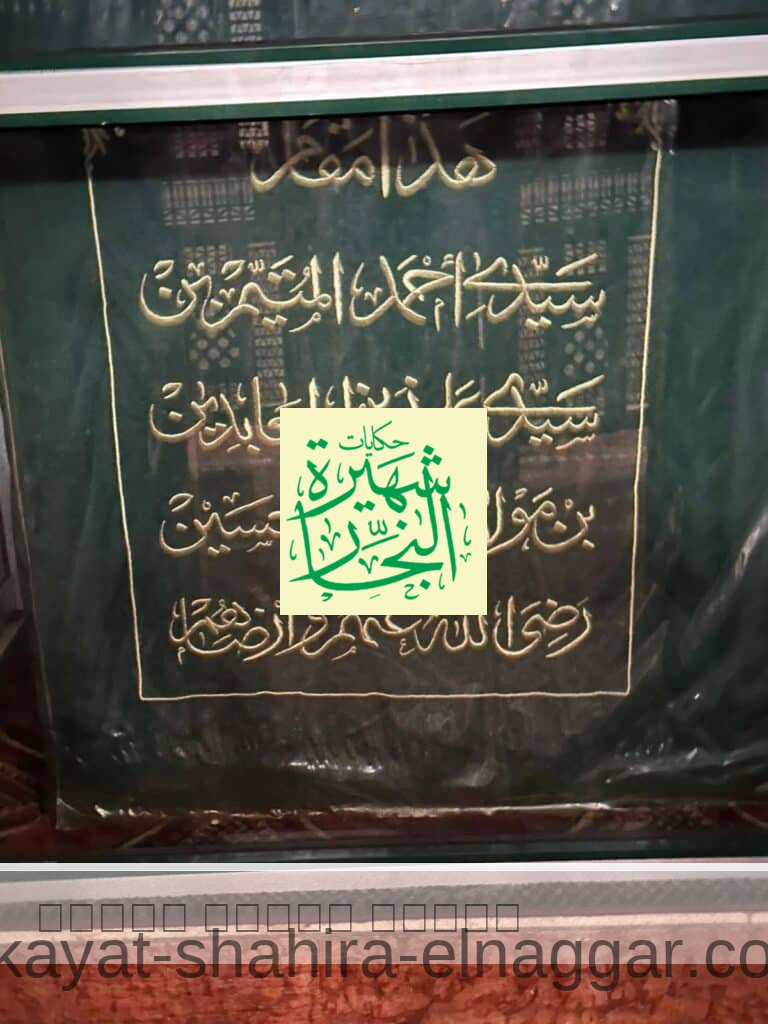 هَذَا مَقَام
سَيِّدِي أَحْمَد المُتَيَّمِ بْن
سَيِّدِي عَلِي زين العَابِدِين
بْن مَوْلَا حُسَيْن
رَضِيَ اللّه عَنْهُمْ وَأَرْضَاهُمْ
حكايات
شَهِيرَة
النَجَّار
kayat-shahira-elnaggar.co